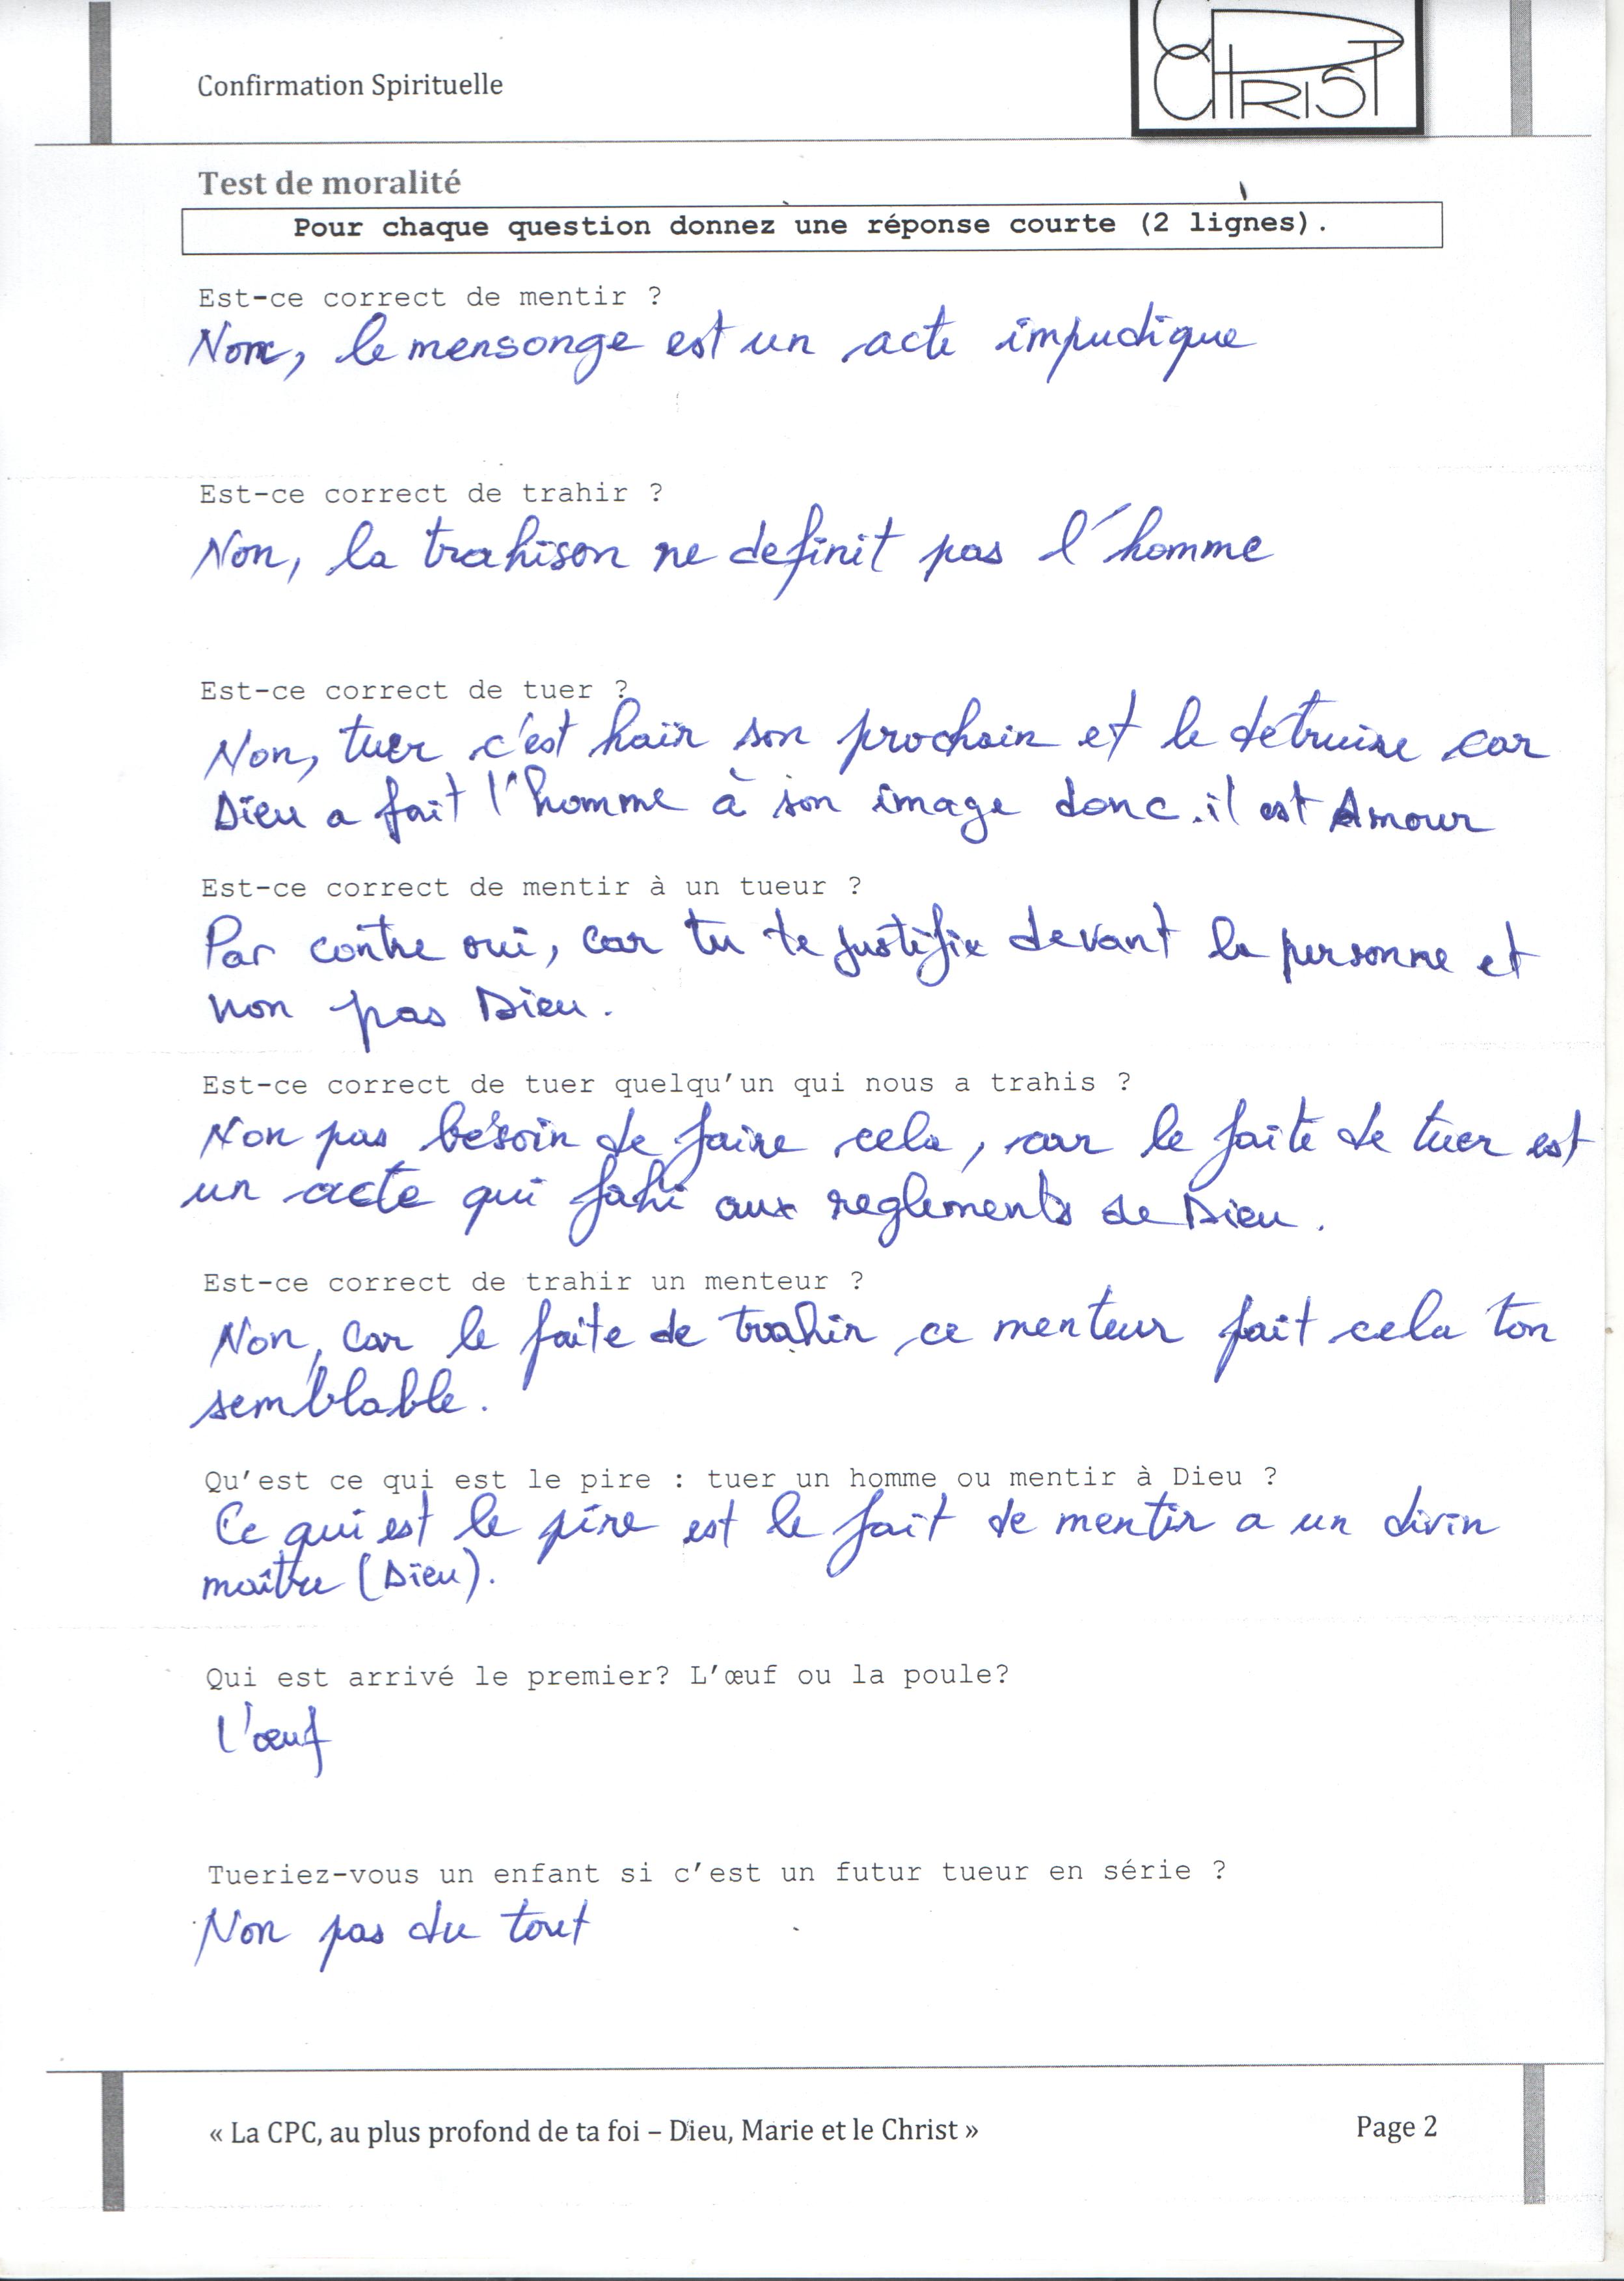 Confirmation Spirituelle
CHRIST
Test de moralité
Pour chaque question donnez une réponse courte (2 lignes).
Est-ce correct de mentir ?
Non, le mensonge est un acte impudique
Est-ce correct de trahir ?
Non, la trahison ne definit pas l'homme
Est-ce correct de tuer ?
Non, tuer c'est haïr son prochain et le détruire car
Dieu a fait l'homme à son image donc il est Amour
Est-ce correct de mentir à un tueur ?
Par contre oui, car tu te justifie devant la personne et
non pas Dieu.
Est-ce correct de tuer quelqu'un qui nous a trahis ?
Non pas besoin de faire cela, car le faite de tuer est
un acte qui aux reglements de Dieu.
Est-ce correct de trahir un menteur ?
Non, car le faite de trahir ce menteur fait cela ton
semblable.
Qu'est ce qui est le pire : tuer un homme ou mentir à Dieu ?
Ce qui est le pire est le fait de mentir a un divin
maître (Dieu).
Qui est arrivé le premier? L'œuf ou la poule?
L'œuf
Tueriez-vous un enfant si c'est un futur tueur en série ?
Non pas du tout
« La CPC, au plus profond de ta foi – Dieu, Marie et le Christ »
Page 2